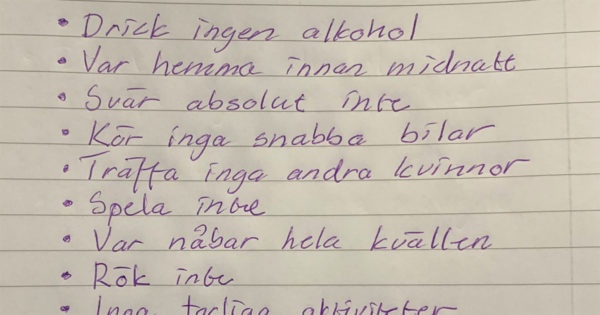 • Drick ingen alkohol
• Var hemma innan midnatt
• Svär absolut inte
• Kör inga snabba bilar
• Träffa inga andra kvinnor
• Spela inte
• Var nåbar hela kvällen
• Rök inte
• Inga farliga aktiviteter